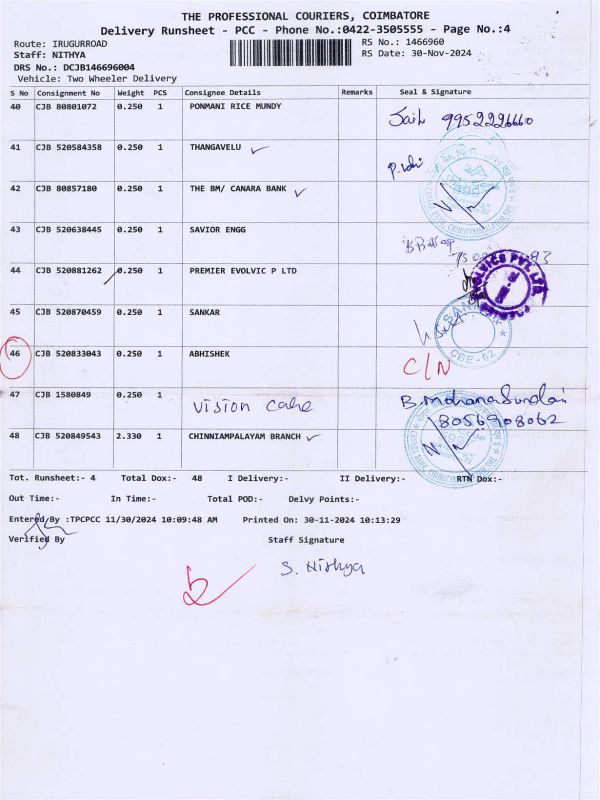 THE PROFESSIONAL COURIERS, COIMBATORE
Delivery Runsheet - PCC - Phone No.:0422-3505555 - Page No.:4
Route: IRUGURROAD RS No.: 1466960
Staff: NITHYA RS Date: 30-Nov-2024
DRS No.: DCJB146696004
Vehicle: Two Wheeler Delivery
S No Consignment No Weight PCS Consignee Details Remarks Seal & Signature
40 CJB 80801072 0.250 1 PONMANI RICE MUNDY 9952226660
41 CJB 520584358 0.250 1 THANGAVELU
42 CJB 80857180 0.250 1 THE BM/ CANARA BANK
43 CJB 520638445 0.250 1 SAVIOR ENGG
44 CJB 520881262 0.250 1 PREMIER EVOLVIC P LTD
45 CJB 520870459 0.250 1 SANKAR
CBE-62
46 CJB 520833043 0.250 1 ABHISHEK C/N
47 CJB 1580849 0.250 1 Vision Care B. Mohana Sundari
8056908062
48 CJB 520849543 2.330 1 CHINNIAMPALAYAM BRANCH
Tot. Runsheet:- 4 Total Dox:- 48 I Delivery:- II Delivery:- RTN Dox:-
Out Time:- In Time:- Total POD:- Delvy Points:-
Entered By :TPCPCC 11/30/2024 10:09:48 AM Printed On: 30-11-2024 10:13:29
Verified By Staff Signature
S. Nithya